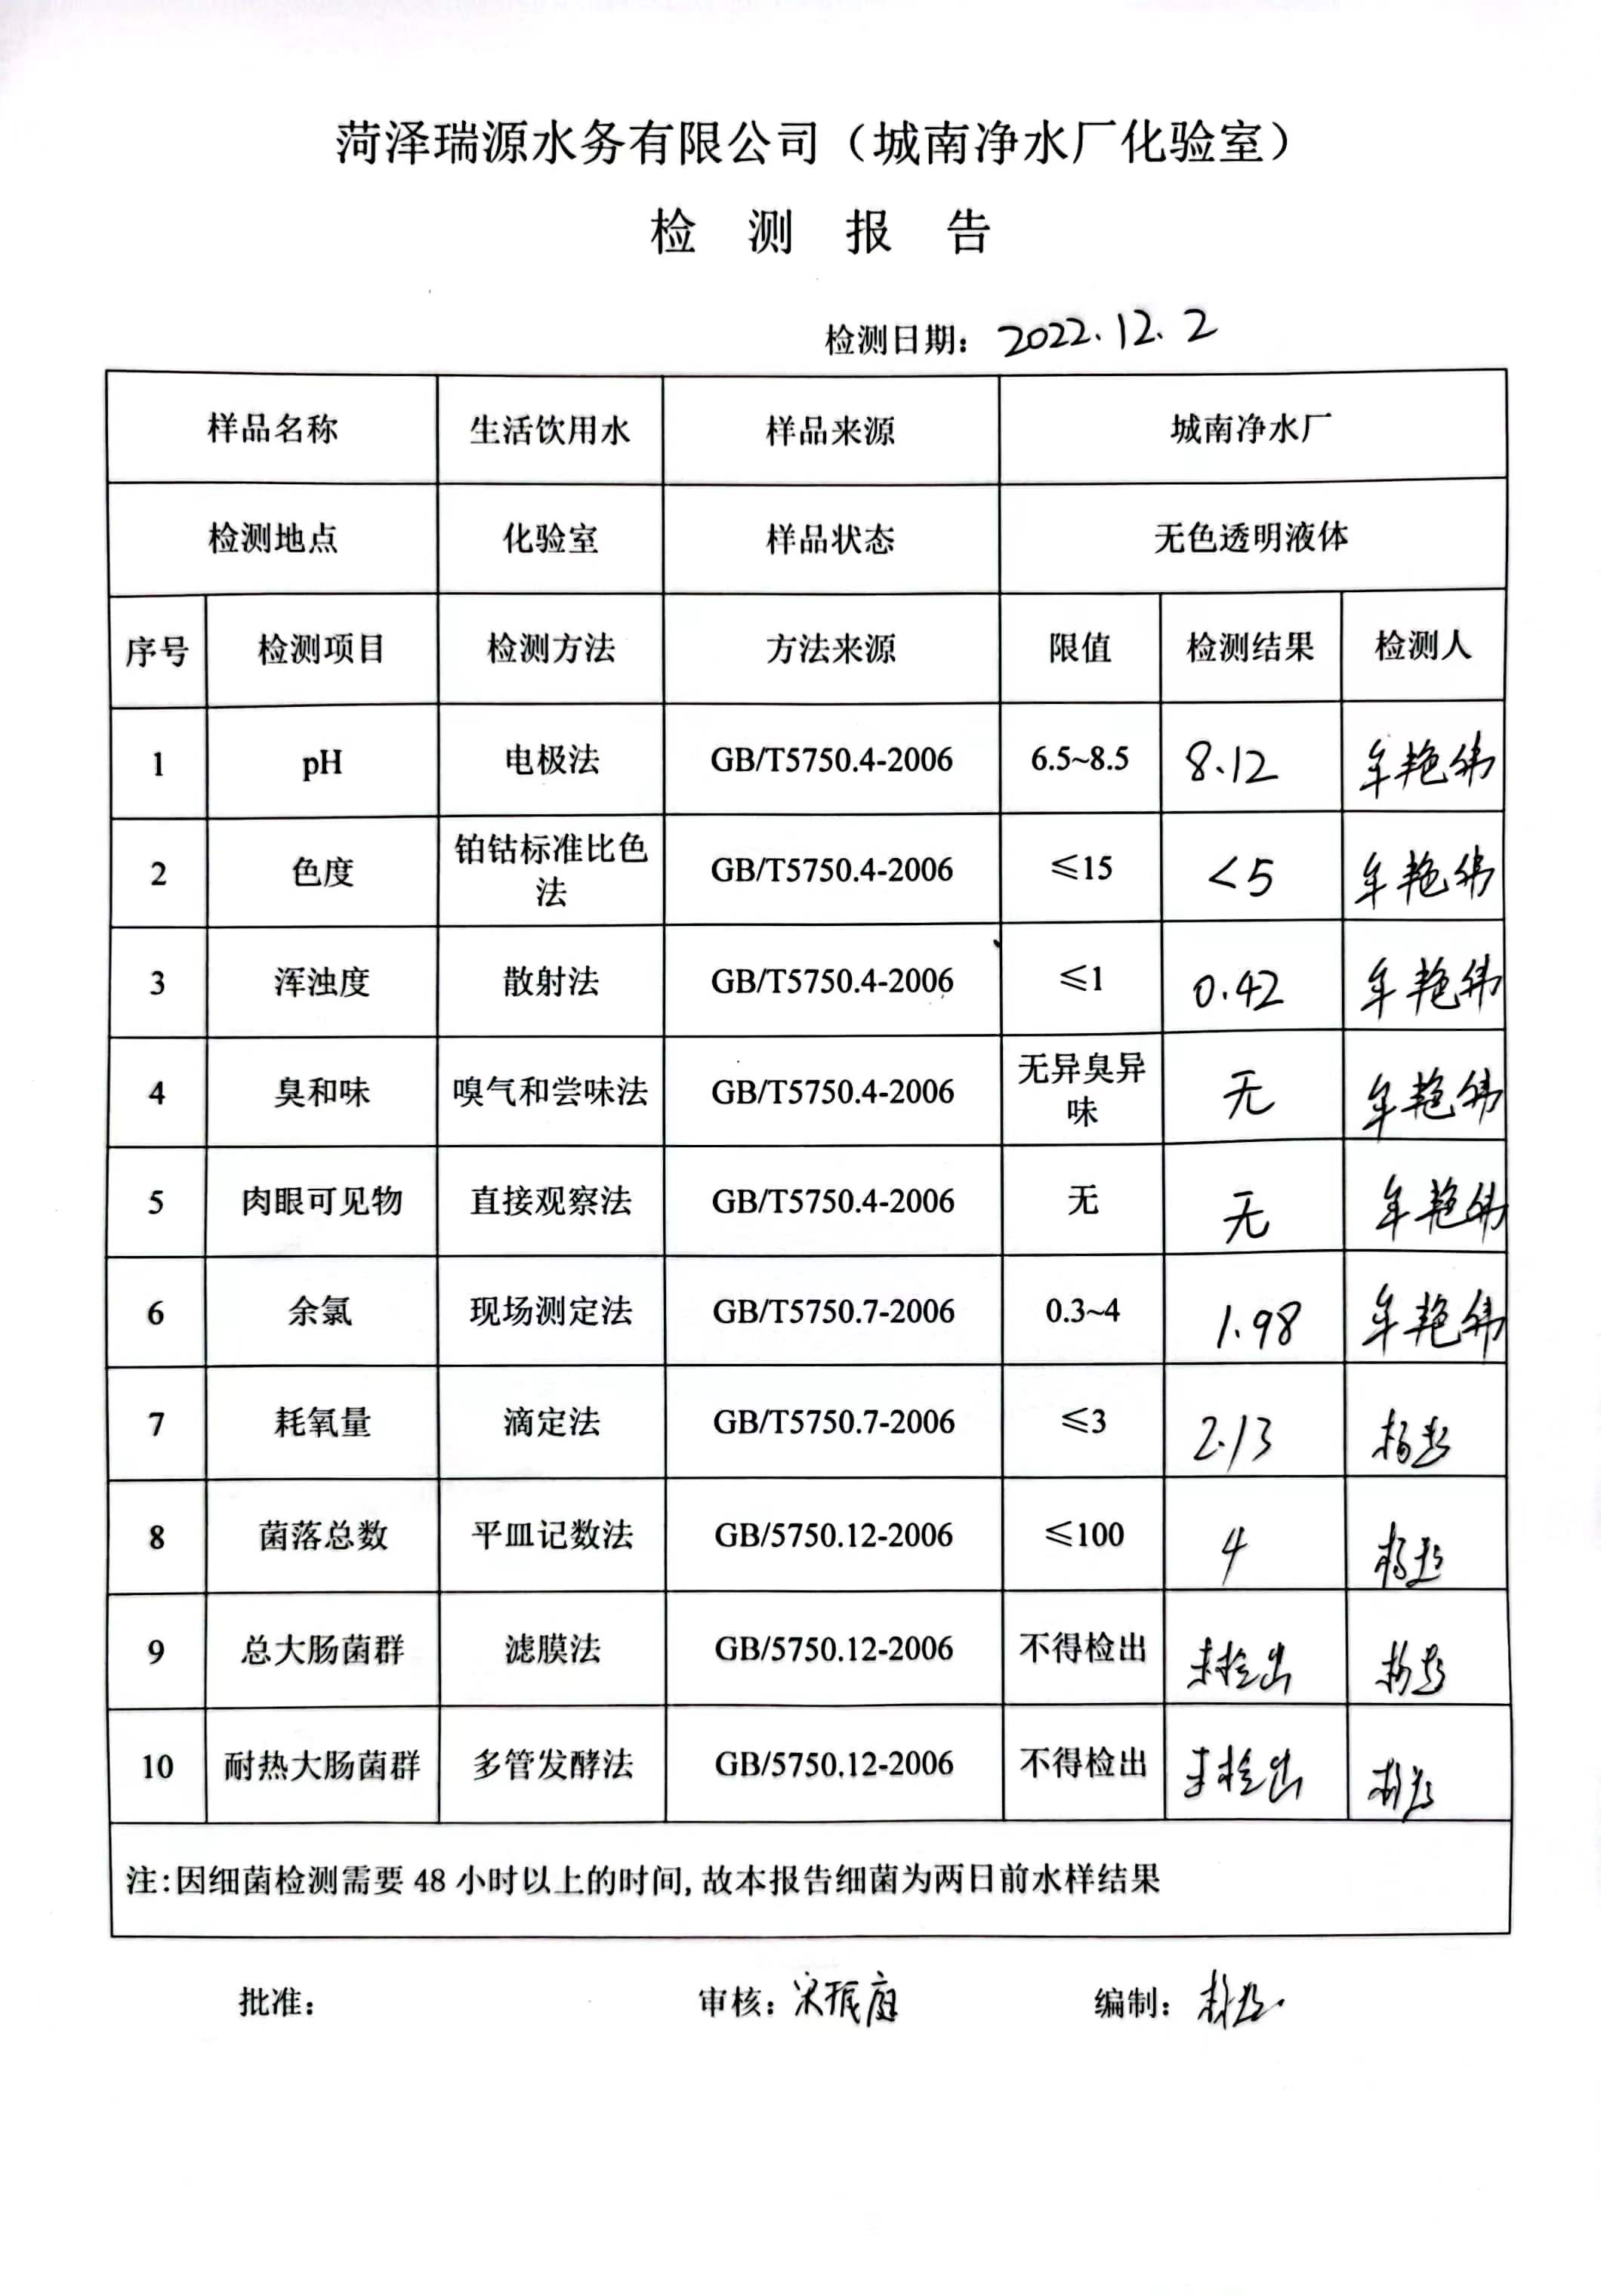 菏泽瑞源水务有限公司（城南净水厂化验室）
检 测 报 告
检测日期：2022.12.2
样品名称 生活饮用水 样品来源 城南净水厂
检测地点 化验室 样品状态 无色透明液体
序号 检测项目 检测方法 方法来源 限值 检测结果 检测人
1 pH 电极法 GB/T5750.4-2006 6.5~8.5 8.12 牟艳伟
2 色度 铂钴标准比色法 GB/T5750.4-2006 ≤15 <5 牟艳伟
3 浑浊度 散射法 GB/T5750.4-2006 ≤1 0.42 牟艳伟
4 臭和味 嗅气和尝味法 GB/T5750.4-2006 无异臭异味 无 牟艳伟
5 肉眼可见物 直接观察法 GB/T5750.4-2006 无 无 牟艳伟
6 余氯 现场测定法 GB/T5750.7-2006 0.3~4 1.98 牟艳伟
7 耗氧量 滴定法 GB/T5750.7-2006 ≤3 2.13
8 菌落总数 平皿记数法 GB/5750.12-2006 ≤100 4
9 总大肠菌群 滤膜法 GB/5750.12-2006 不得检出 未检出
10 耐热大肠菌群 多管发酵法 GB/5750.12-2006 不得检出 未检出
注:因细菌检测需要 48 小时以上的时间,故本报告细菌为两日前水样结果
批准： 审核：宋振庭 编制：